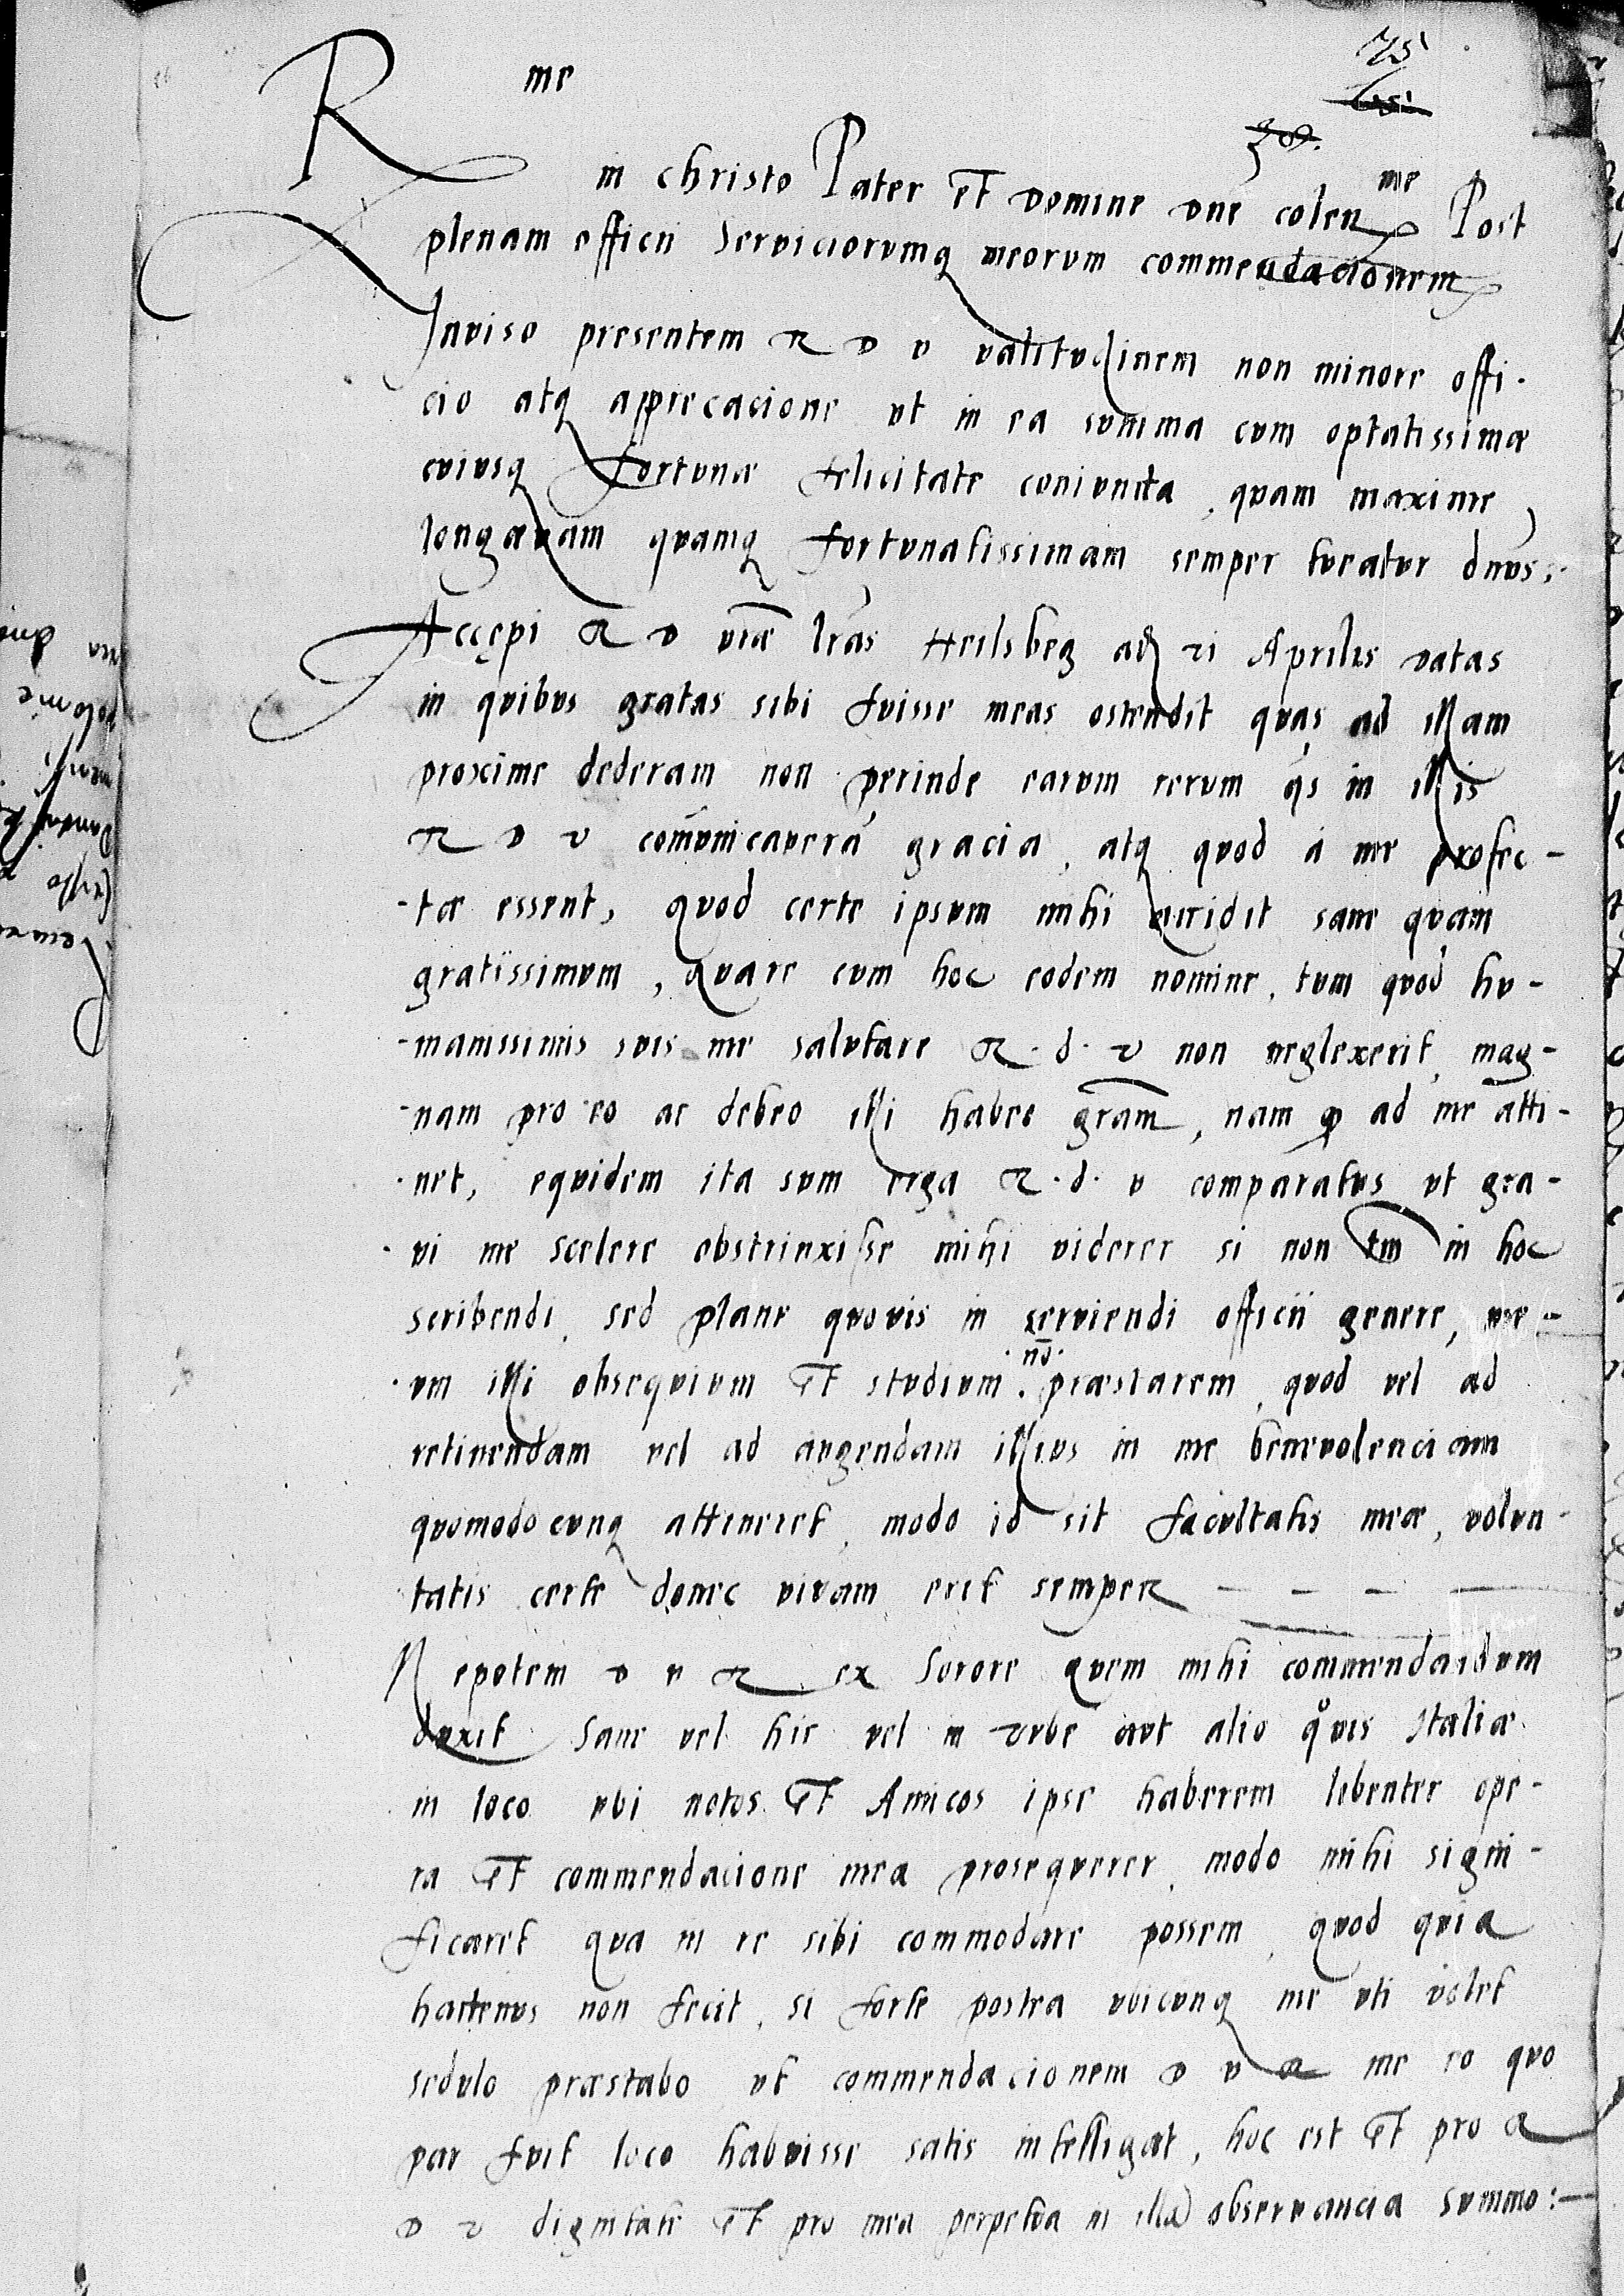 75
30.
R me in Christo Pater et domine dne colen me Post
plenam officii Serviciorumq meorum commendacionem
Inviso presentem R D V valitudinem non minore offi-
cio atq apprecacione ut in ea summa cum optatissimæ
cuiusq fortunæ felicitate coniuncta, quam maxime
longævam quamq fortunatissimam semper tueatur dnus,
Accępi R D vræ lras Heilsbeg ad xi Aprilis datas
in quibus gratas sibi fuisse meas ostendit quas ad illam
proxime dederam non perinde earum rerum qs in illis
R D V comunicaveram gracia, atq quod à me profec-
-tæ essent, quod certe ipsum mihi accidit sane quam
gratissimum, Quare cum hoc eodem nomine, tum quod hu-
-manissimis suis me salutare R. d. v non neglexerit, mag-
-nam pro eo ac debeo illi habeo gram, nam qd ad me atti-
-net, equidem ita sum erga R. d. v comparatus ut gra-
-vi me scelere obstrinxisse mihi viderer si non tm in hoc
scribendi, sed plane quovis in serviendi officii genere, me-
-um illi obsequium et studium . nō . præstarem, quod vel ad
retinendam vel ad augendam illius in me benevolenciam
quomodocunq attineret, modo id sit facultatis meæ, volun-
tatis certe donec vivam erit semper - - - -
Nepotem D V R ex Sorore quem mihi commendandum
duxit Sane vel hic vel in Urbe aut alio quovis Italiæ
in loco ubi notos et Amicos ipse haberem libenter ope-
ra et commendacione mea prosequerer, modo mihi signi-
ficaret qua in re sibi commodare possem, quod quia
hactenus non fecit, si forte postea ubicunq me uti volet
sedulo præstabo ut commendacionem D V R me eo quo
par fuit loco habuisse satis intelligat, hoc est et pro R
D V dignitate et pro mea perpetua in illa observancia summo:-